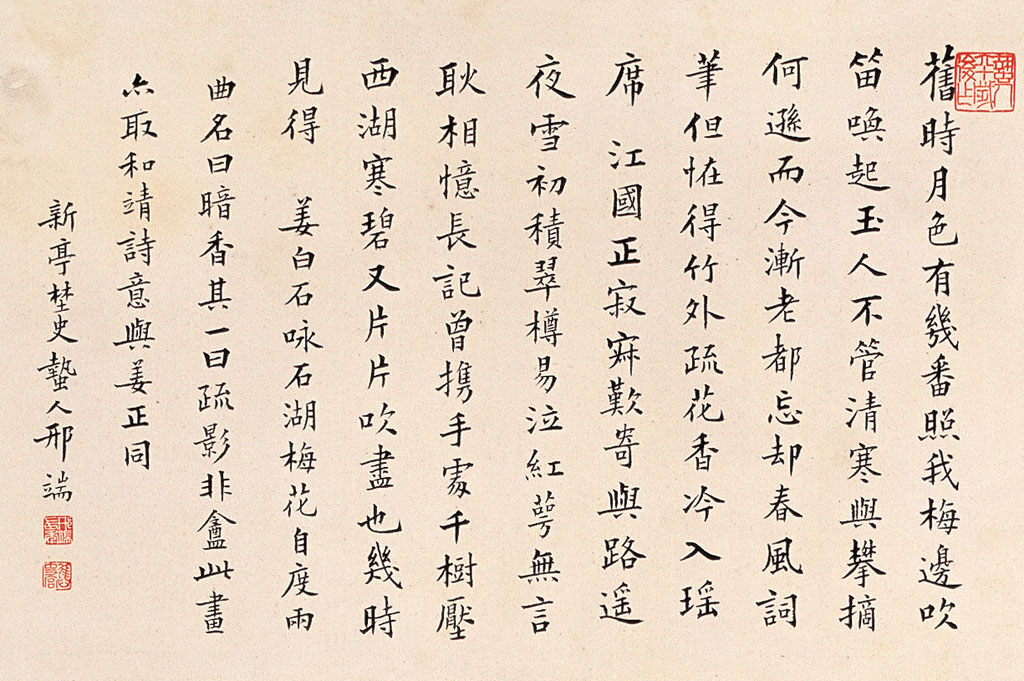 舊時月色有幾番照我梅邊吹
笛喚起玉人不管清寒與攀摘
何遜而今漸老都忘却春風詞
筆但恠得竹外疏花香冷入瑶
席 江國正寂歎寄與路遥
夜雪初積翠樽易泣紅萼無言
耿相憶長記曾携手處千樹壓
西湖寒碧又片片吹盡也幾時
見得 姜白石咏石湖梅花自度兩
曲名曰暗香其一曰疏影非盦此畫
亦取和靖詩意與姜正同
新亭埜史蟄人邢端